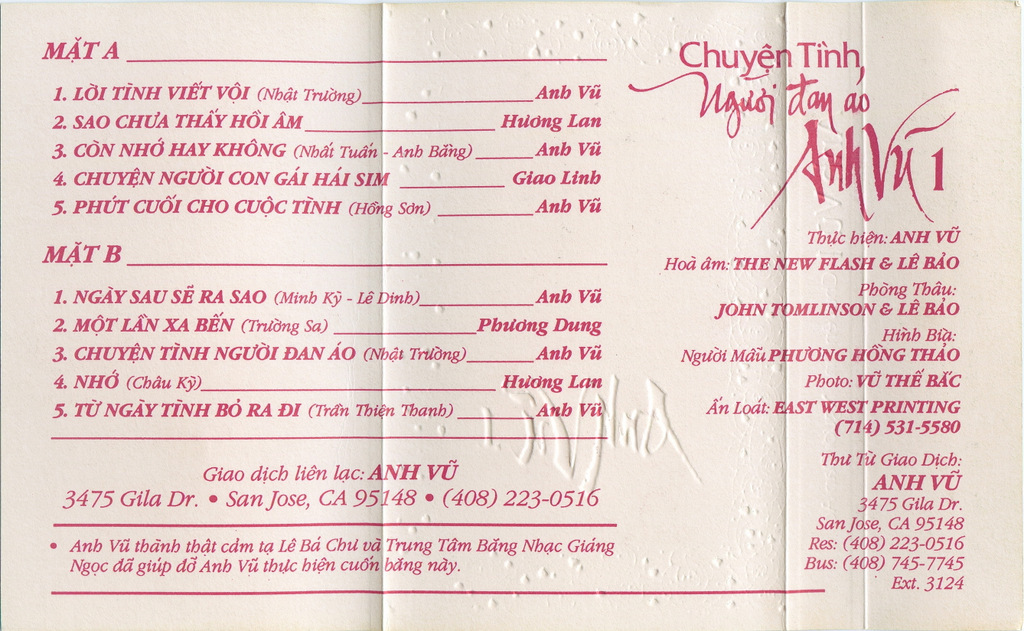 MẶT A
1. LỜI TÌNH VIẾT VỘI (Nhật Trường) Anh Vũ
2. SAO CHƯA THẤY HỒI ÂM Hương Lan
3. CÒN NHỚ HAY KHÔNG (Nhất Tuấn - Anh Bằng) Anh Vũ
4. CHUYỆN NGƯỜI CON GÁI HÁI SIM Giao Linh
5. PHÚT CUỐI CHO CUỘC TÌNH (Hồng Sơn) Anh Vũ
MẶT B
1. NGÀY SAU SẼ RA SAO (Minh Kỳ - Lê Dinh) Anh Vũ
2. MỘT LẦN XA BẾN (Trường Sa) Phương Dung
3. CHUYỆN TÌNH NGƯỜI ĐAN ÁO (Nhật Trường) Anh Vũ
4. NHỚ (Châu Kỳ) Hương Lan
5. TỪ NGÀY TÌNH BỎ RA ĐI (Trần Thiện Thanh) Anh Vũ
Giao dịch liên lạc: ANH VŨ
3475 Gila Dr. • San Jose, CA 95148 • (408) 223-0516
• Anh Vũ thành thật cảm tạ Lê Bá Chư và Trung Tâm Băng Nhạc Giáng
Ngọc đã giúp đỡ Anh Vũ thực hiện cuốn băng này.
Chuyện Tình
Người đan áo
Anh Vũ 1
Thực hiện: ANH VŨ
Hoà âm: THE NEW FLASH & LÊ BẢO
Phòng Thâu:
JOHN TOMLINSON & LÊ BẢO
Hình Bìa:
Người Mẫu PHƯƠNG HỒNG THẢO
Photo: VŨ THẾ BẮC
Ấn Loát: EAST WEST PRINTING
(714) 531-5580
Thư Từ Giao Dịch:
ANH VŨ
3475 Gila Dr.
San Jose, CA 95148
Res: (408) 223-0516
Bus: (408) 745-7745
Ext. 3124
Anh Vũ 1